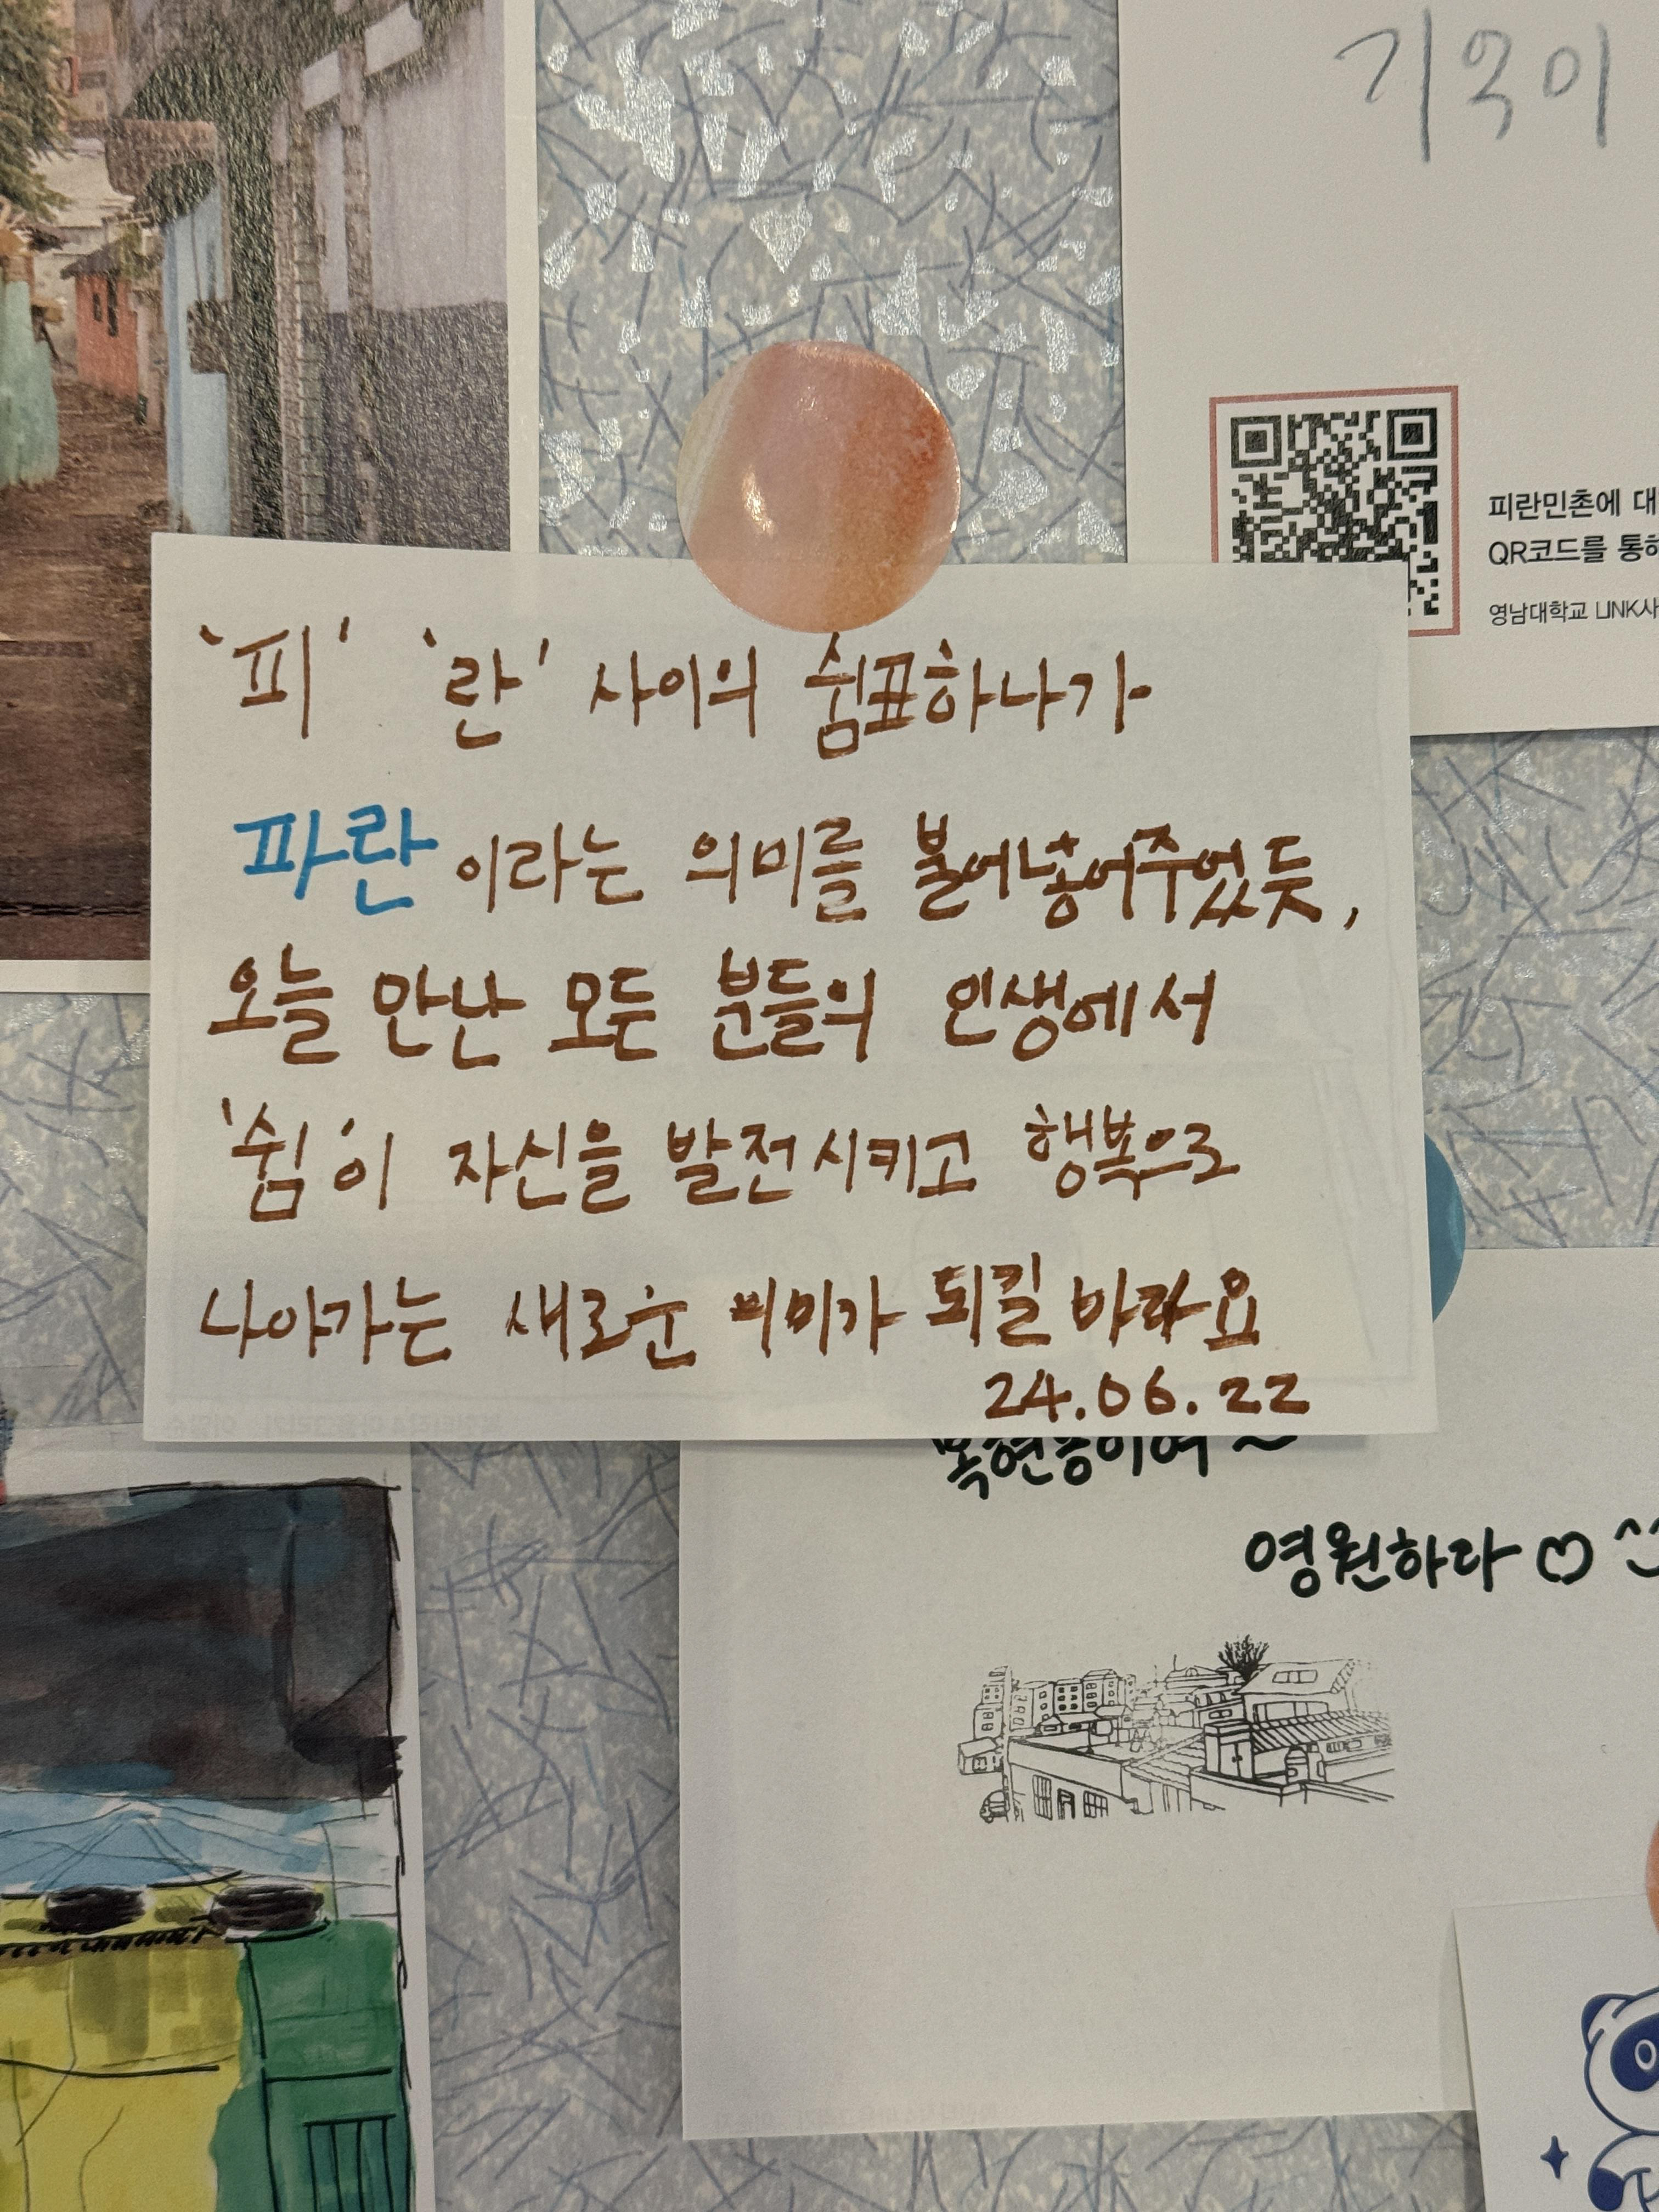 기억이
피란민촌에 대
QR코드를 통하
영남대학교 LINK사
'피' '란' 사이의 쉼표하나가
파란 이라는 의미를 불어넣어주었듯,
오늘 만난 모든 분들의 인생에서
'쉼'이 자신을 발전시키고 행복으로
나아가는 새로운 의미가 되길 바라요
24.06.22
복현동이여 ~
영원하라 ♡ ^^